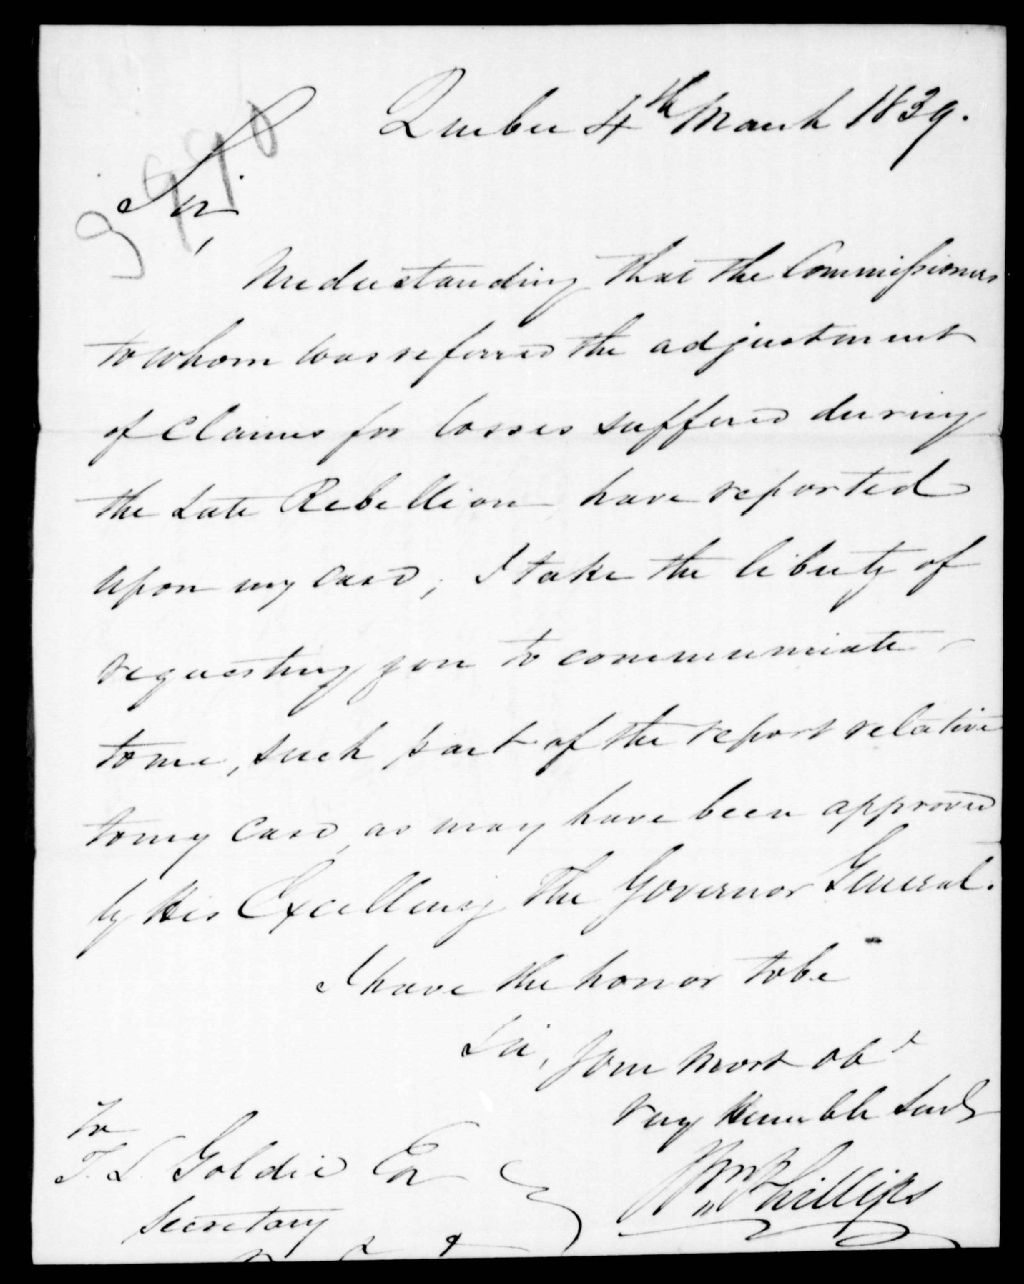 Quebec 4th March 1839.
3990
Sir,
Understanding that the Commissioners
to whom was referred the adjustment
of Claims for losses suffered during
the Late Rebellion, have reported
upon my case, I take the liberty of
requesting you to communicate
to me, such part of the report relative
to my case, as may have been approved
by His Excellency The Governor General.
I have the honor to be
Sir, Your Most Obt
Very Humble Servt
Wm Phillips
To
T. L. Goldie Esq
Secretary